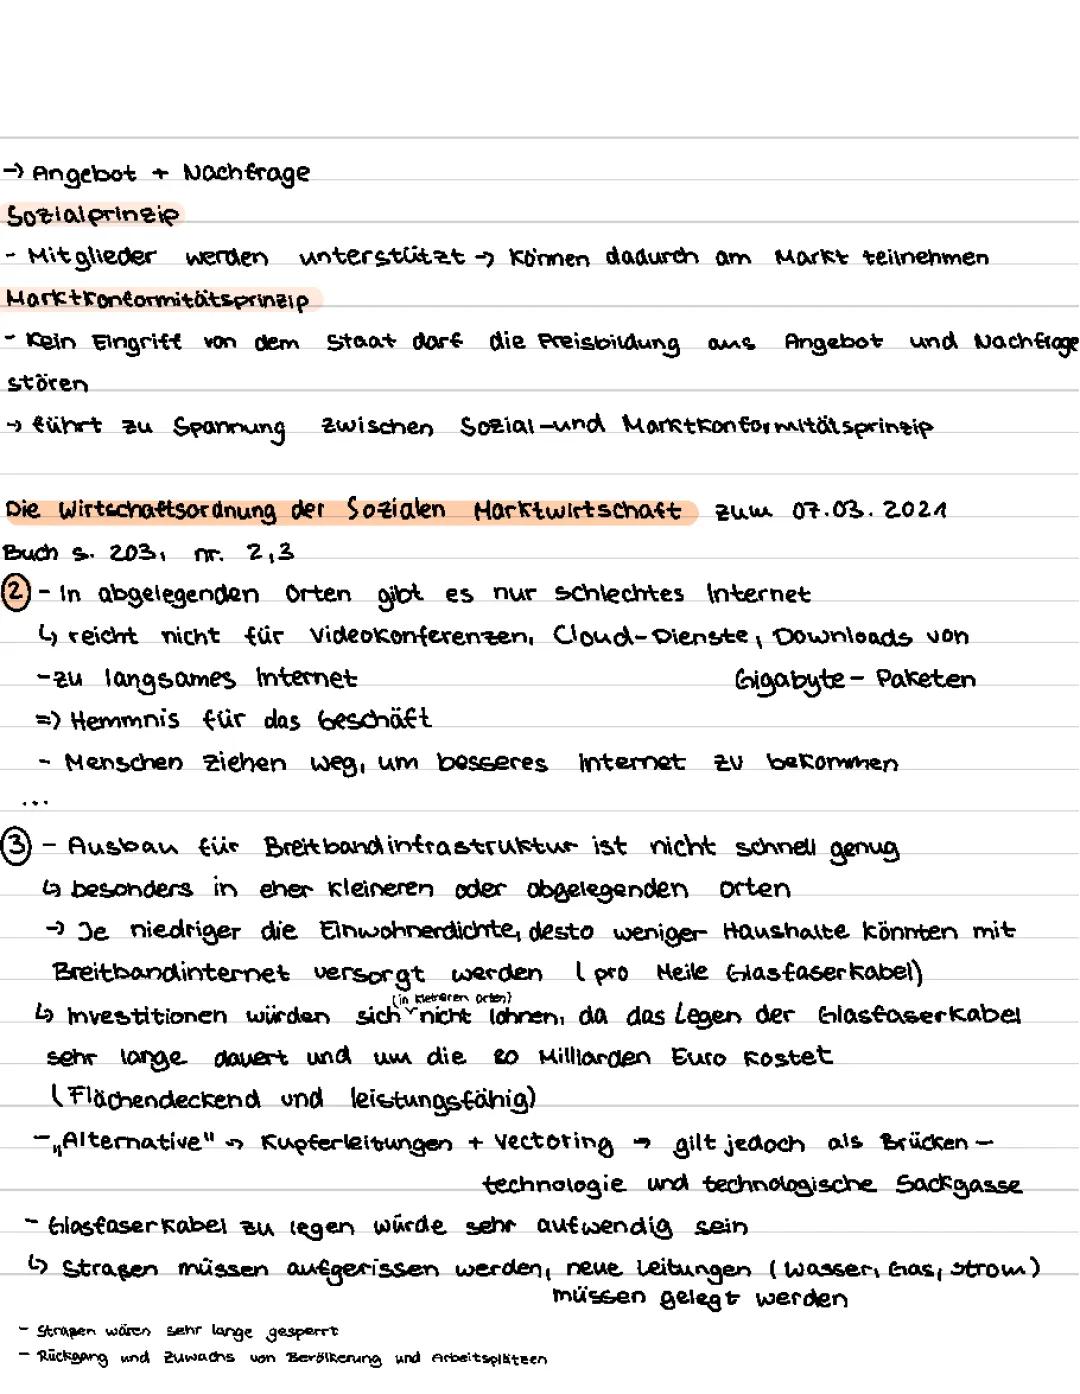 → Angebot + Nachfrage
Sozialprinzip
- Mitglieder werden unterstützt → können dadurch am Markt teilnehmen
Marktkonformitätsprinzip
- Kein Eingriff von dem Staat darf die Preisbildung aus Angebot und Nachfrage
stören
→ führt zu Spannung zwischen Sozial-und Marktkonformitätsprinzip
Die Wirtschaftsordnung der Sozialen Marktwirtschaft zum 07.03.2021
Buch s. 203, nr. 2,3
② - In abgelegenden Orten gibt es nur schlechtes Internet
↳ reicht nicht für Videokonferenzen, Cloud-Dienste, Downloads von
Gigabyte-Paketen
-zu langsames Internet
=> Hemmnis für das Geschäft
- Menschen ziehen weg, um besseres Internet zu bekommen
...
③ - Ausbau für Breitbandinfrastruktur ist nicht schnell genug
↳ besonders in eher kleineren oder abgelegenden orten
→ Je niedriger die Einwohnerdichte, desto weniger Haushalte könnten mit
Breitbandinternet versorgt werden (pro Meile Glasfaserkabel)
↳ Investitionen würden sich (in kleineren Orten) nicht lohnen, da das Legen der Glasfaserkabel
sehr lange dauert und um die 80 Milliarden Euro kostet
(Flächendeckend und leistungsfähig)
- „Alternative" → Kupferleitungen + Vectoring → gilt jedoch als Brücken-
technologie und technologische Sackgasse
- Glasfaserkabel zu legen würde sehr aufwendig sein
↳ Straßen müssen aufgerissen werden, neue Leitungen (Wasser, Gas, Strom)
müssen gelegt werden
- Straßen wären sehr lange gesperrt
- Rückgang und Zuwachs von Bevölkerung und Arbeitsplätzen